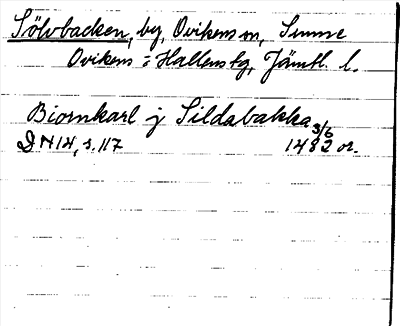 Sölvbacken, by, Ovikens sn, Sunne
Ovikens o Hallens tg, Jämtl. l.
Biornkarl j Sildabakka 3/6
DN 14, s. 117 1482 or.